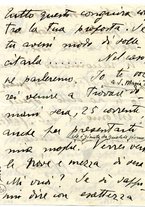 Tutto questo congiura con
tra la tua proposta. Se
tu avevi modo di solle
citarla Nel caso
ne parleremo. Io ti
rei venire a trovare do
mani sera, 25 corrente
anche per presentarti
mia moglie. Verrei ver
so le nove e mezza di sera
Mi vuoi? Se ti
mi dire con esattezza